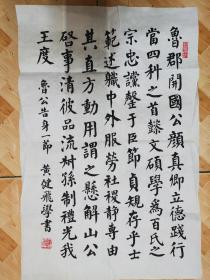 魯郡開國公顏真卿立德踐行
當四科之首懿文碩學爲百氏之
宗忠讜罄于臣節貞規存乎士
範述職中外服勞社稷靜專由
其直方動用謂之懸解山公
啓事清彼品流叔孫制禮光我
王度 魯公告身一節 黃健飛學書